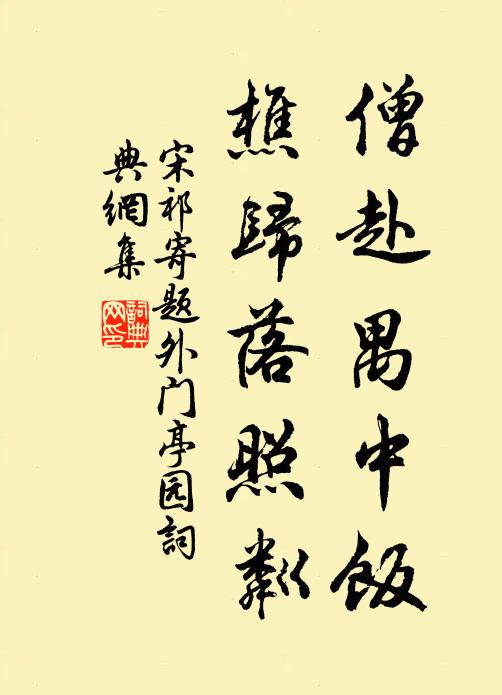 僧赴禺中飯
樵歸落照粼
宋祁寄题外门亭园詞
典網集
詞典
网印